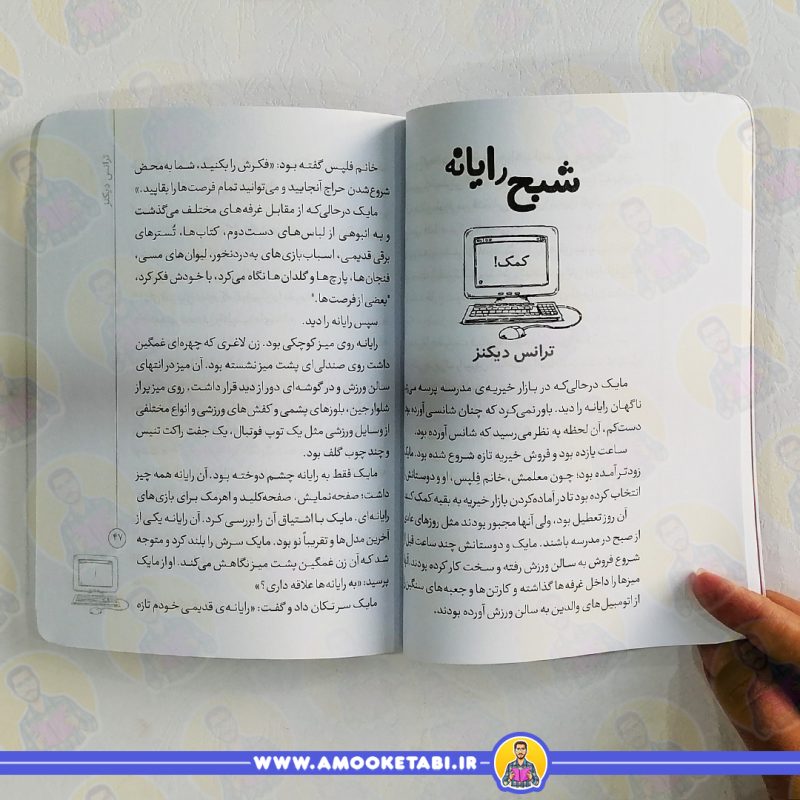 شبح رایانه
کمک!
ترانس دیکنز
مایک درحالی‌که در بازار خیریه‌ی مدرسه پرسه
ناگهان رایانه را دید. باور نمی‌کرد که چنان شانسی آورده
دست‌کم، آن لحظه به نظر می‌رسید که شانس آورده بود.
ساعت یازده بود و فروش خیریه تازه شروع شده بود.
زودتر آمده بود؛ چون معلمش، خانم فلپس، او و دوستانش
انتخاب کرده بود تا در آماده‌کردن بازار خیریه به بقیه کمک
آن روز تعطیل بود، ولی آنها مجبور بودند مثل روزهای
از صبح در مدرسه باشند. مایک و دوستانش چند ساعت قبل
شروع فروش به سالن ورزش رفته و سخت کار کرده بودند.
میزها را داخل غرفه‌ها گذاشته و کارتن‌ها و جعبه‌های سنگین
از اتومبیل‌های والدین به سالن ورزش آورده بودند.
ترانس دیکنز
خانم فلپس گفته بود: «فکرش را بکنید، شما به‌محض
شروع‌شدن حراج آنجایید و می‌توانید تمام فرصت‌ها را بقاپید.»
مایک درحالی‌که از مقابل غرفه‌های مختلف می‌گذشت
و به انبوهی از لباس‌های دست‌دوم، کتاب‌ها، تُسترهای
برقی قدیمی، اسباب‌بازی‌های به‌دردنخور، لیوان‌های مسی،
فنجان‌ها، پارچ‌ها و گلدان‌ها نگاه می‌کرد، با خودش فکر کرد،
"بعضی از فرصت‌ها."
سپس رایانه را دید.
رایانه روی میز کوچکی بود. زن لاغری که چهره‌ای غمگین
داشت روی صندلی‌ای پشت میز نشسته بود. آن میز در انتهای
سالن ورزش و در گوشه‌ای دور از دید قرار داشت، روی میز پر از
شلوار جین، بلوزهای پشمی و کفش‌های ورزشی و انواع مختلفی
از وسایل ورزشی مثل یک توپ فوتبال، یک جفت راکت تنیس
و چند چوب گلف بود.
مایک فقط به رایانه چشم دوخته بود. آن رایانه همه چیز
داشت؛ صفحه‌نمایش، صفحه‌کلید و اهرمک برای بازی‌های
رایانه‌ای. مایک با اشتیاق آن را بررسی کرد. آن رایانه یکی از
آخرین مدل‌ها و تقریباً نو بود. مایک سرش را بلند کرد و متوجه
شد که آن زن غمگین پشت میز نگاهش می‌کند. او از مایک
پرسید: «به رایانه‌ها علاقه داری؟»
مایک سر تکان داد و گفت: «رایانه‌ی قدیمی خودم تازه
۴۷
WWW.AMOOKETABI.IR